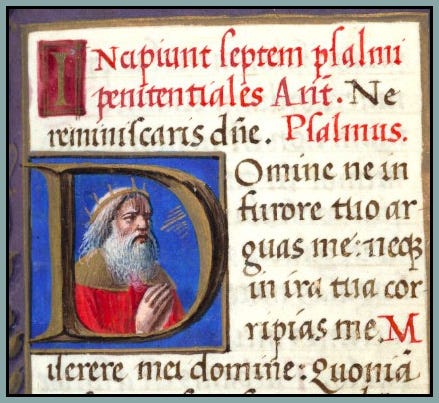 INcipiunt septem psalmi
penitentiales Añt. Ne
reminiscaris dñe. Psalmus.
Domine ne in
furore tuo ar
guas me: neqȝ
in ira tua cor
ripias me. M
iserere mei domine: Quoniã